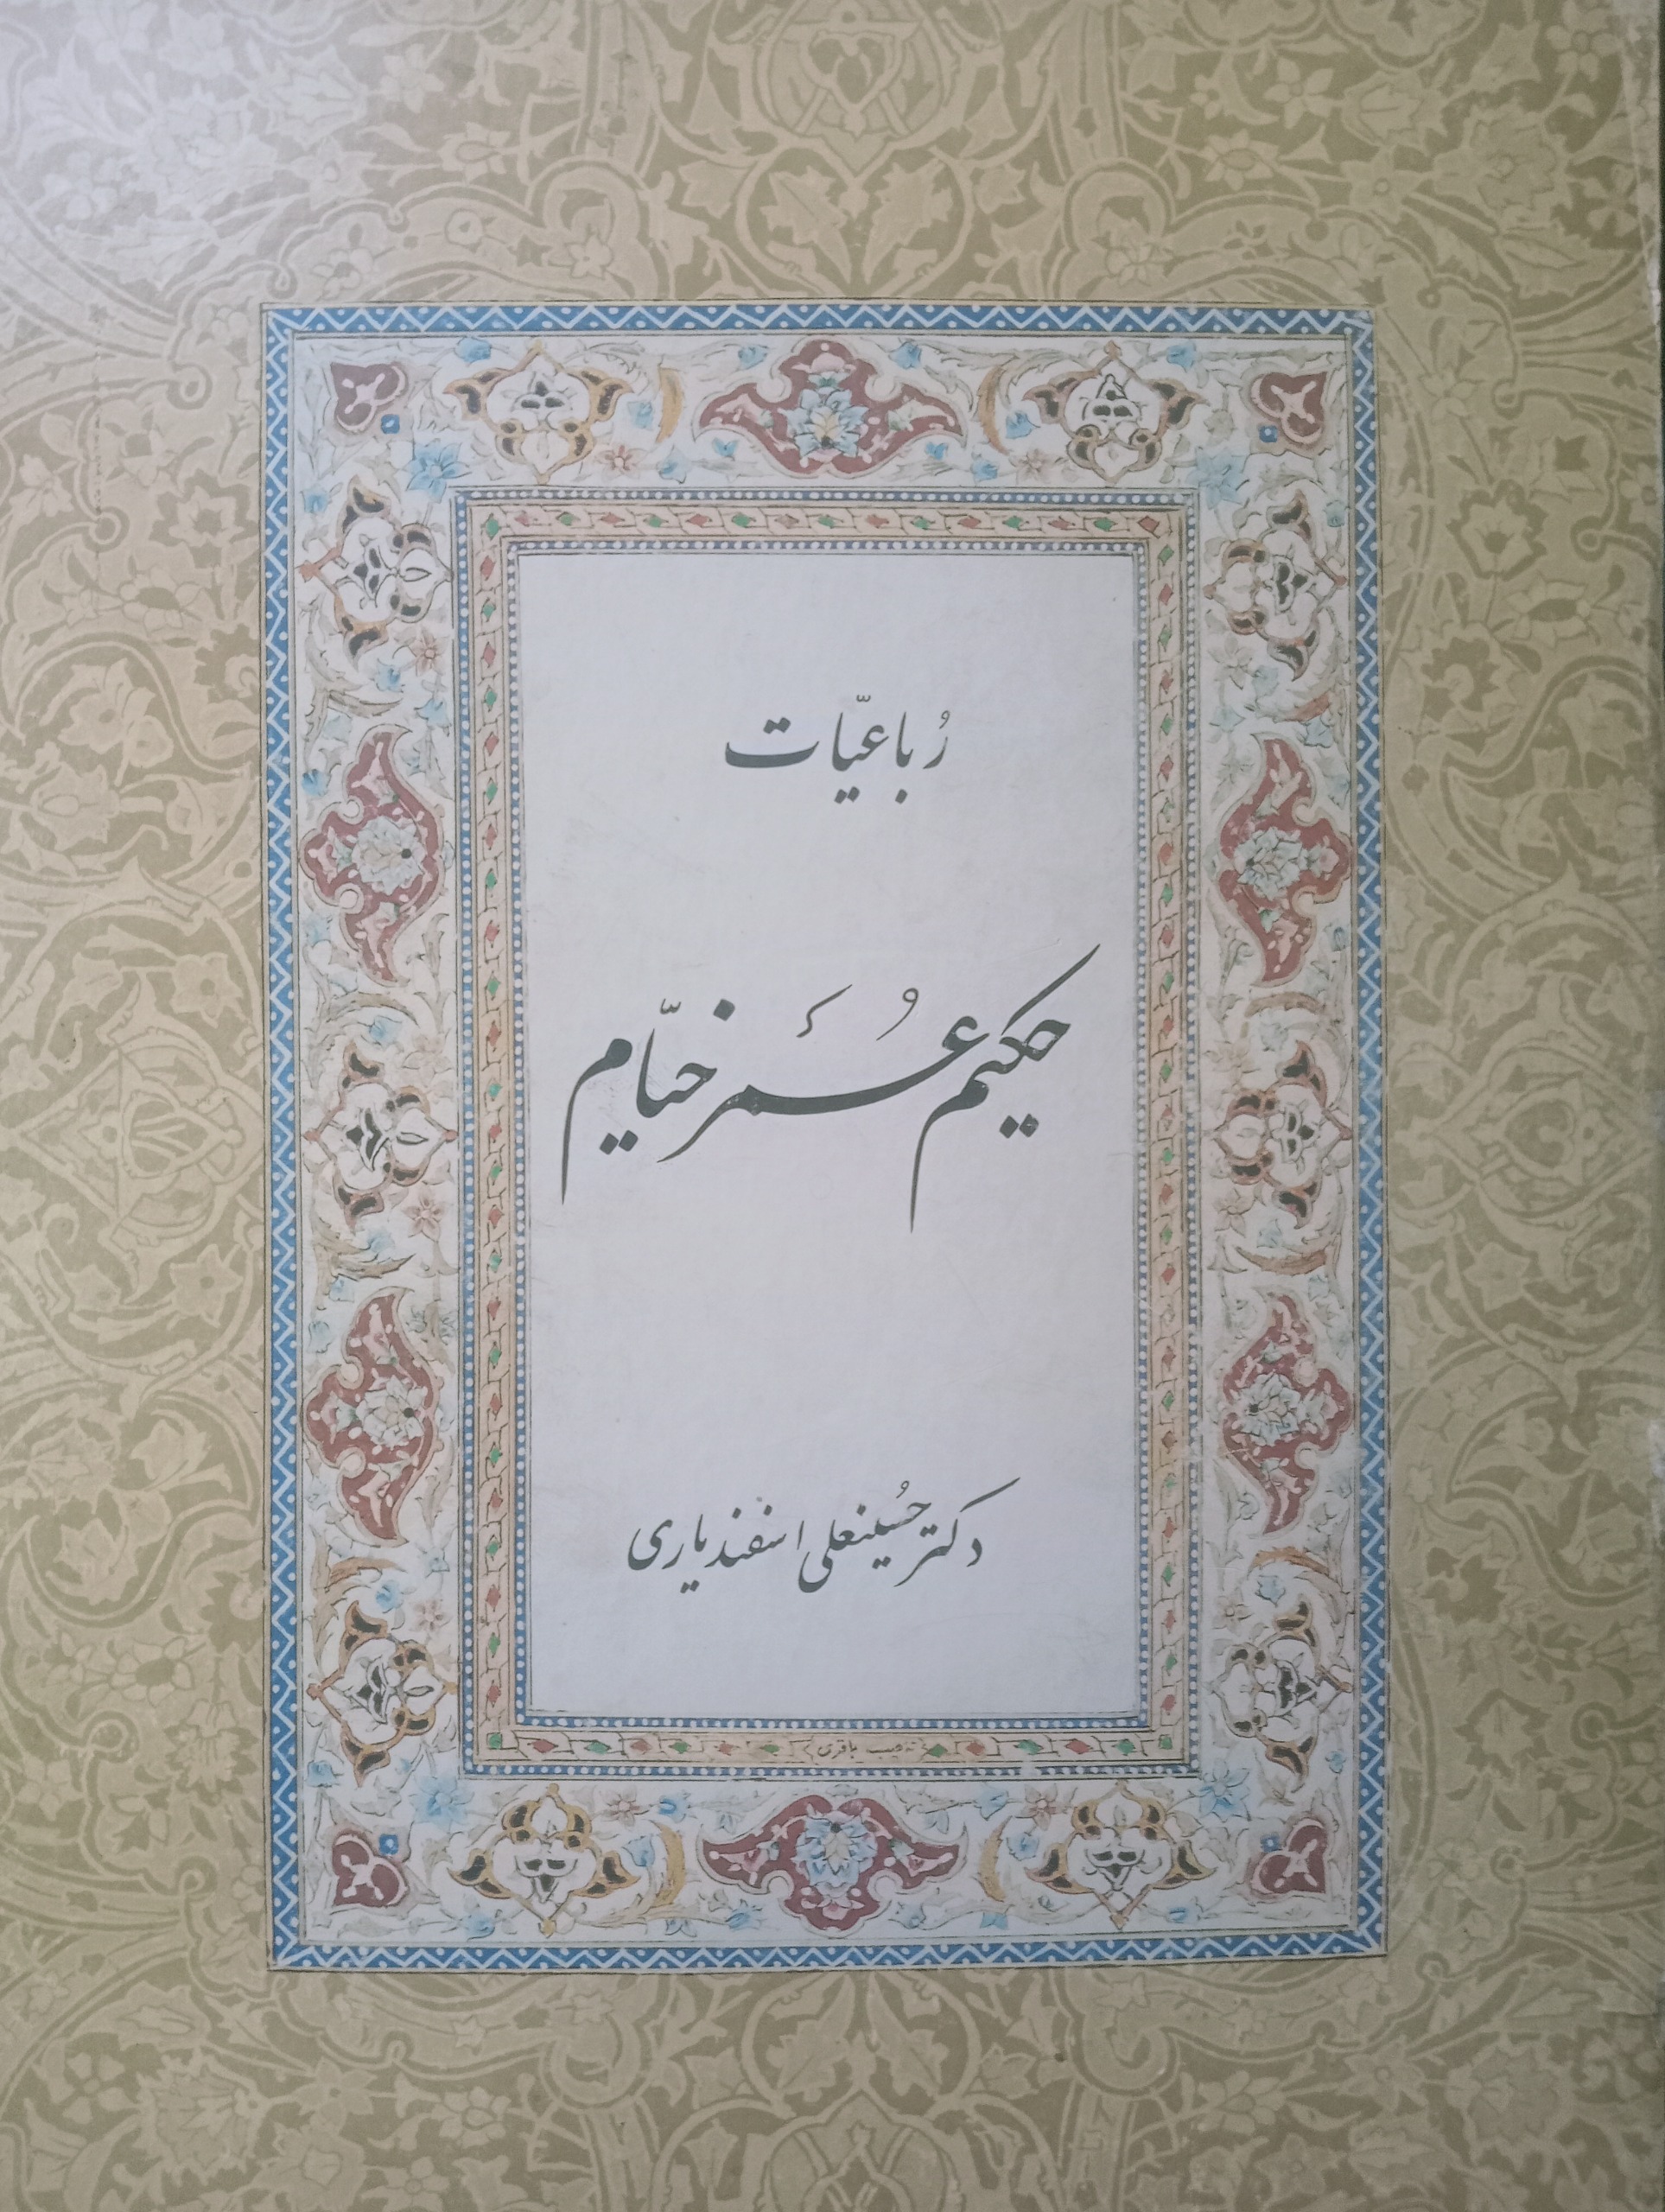 رُباعیّات
حکیم عُمَر خیّام
دکتر حُسینعلی اسفندیاری
باقری